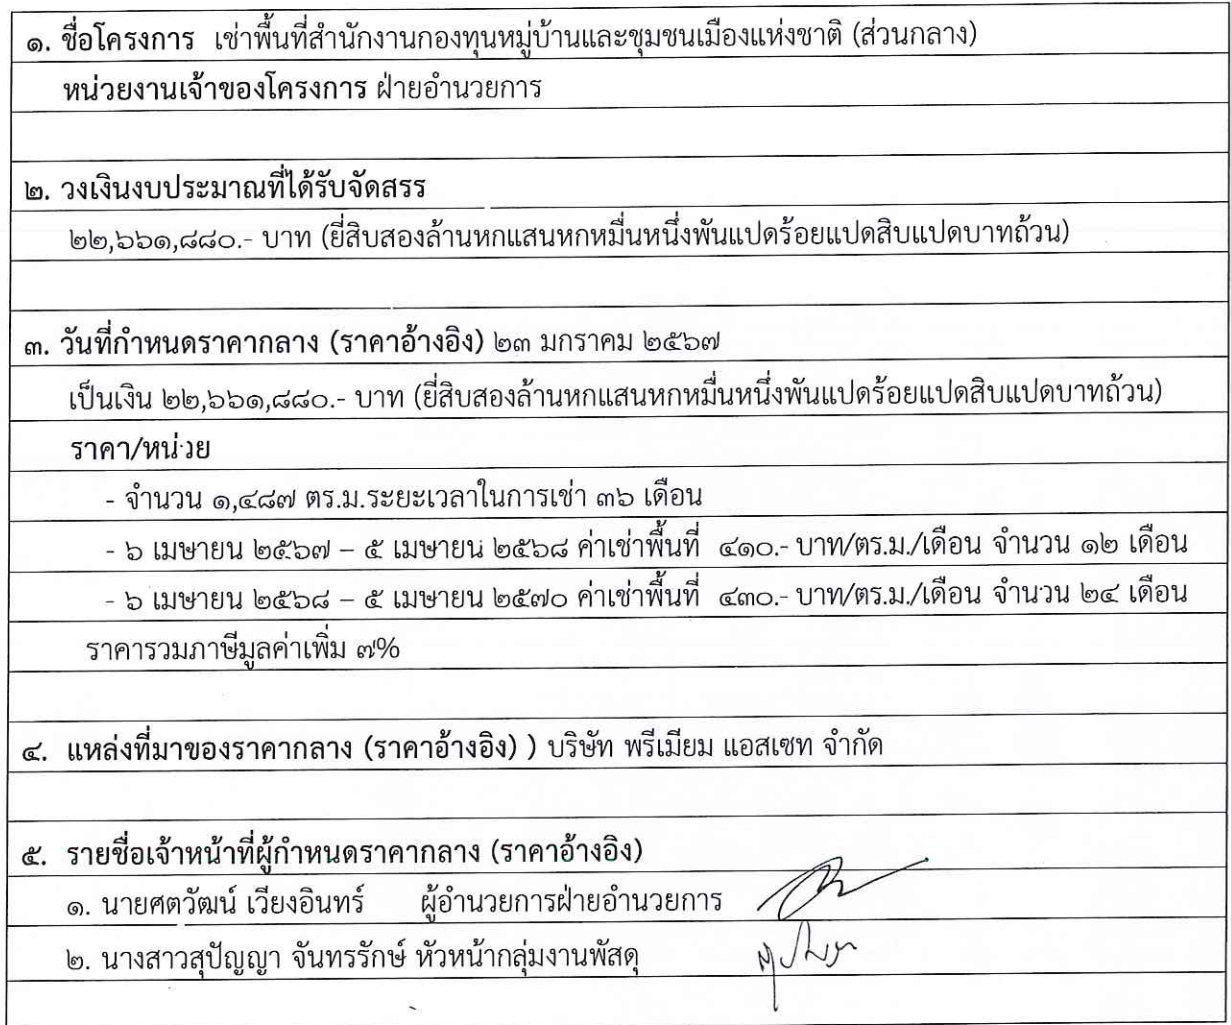 ๑. ชื่อโครงการ เช่าพื้นที่สำนักงานกองทุนหมู่บ้านและชุมชนเมืองแห่งชาติ (ส่วนกลาง)
หน่วยงานเจ้าของโครงการ ฝ่ายอำนวยการ
๒. วงเงินงบประมาณที่ได้รับจัดสรร
๒๒,๖๖๑,๘๘๐.- บาท (ยี่สิบสองล้านหกแสนหกหมื่นหนึ่งพันแปดร้อยแปดสิบแปดบาทถ้วน)
๓. วันที่กำหนดราคากลาง (ราคาอ้างอิง) ๒๓ มกราคม ๒๕๖๗
เป็นเงิน ๒๒,๖๖๑,๘๘๐.- บาท (ยี่สิบสองล้านหกแสนหกหมื่นหนึ่งพันแปดร้อยแปดสิบแปดบาทถ้วน)
ราคา/หน่วย
- จำนวน ๑,๔๘๗ ตร.ม.ระยะเวลาในการเช่า ๓๖ เดือน
- ๖ เมษายน ๒๕๖๗ – ๕ เมษายน ๒๕๖๘ ค่าเช่าพื้นที่ ๔๑๐.- บาท/ตร.ม./เดือน จำนวน ๑๒ เดือน
- ๖ เมษายน ๒๕๖๘ – ๕ เมษายน ๒๕๗๐ ค่าเช่าพื้นที่ ๔๓๐.- บาท/ตร.ม./เดือน จำนวน ๒๔ เดือน
ราคารวมภาษีมูลค่าเพิ่ม ๗%
๔. แหล่งที่มาของราคากลาง (ราคาอ้างอิง) ) บริษัท พรีเมียม แอสเซท จำกัด
๕. รายชื่อเจ้าหน้าที่ผู้กำหนดราคากลาง (ราคาอ้างอิง)
๑. นายศตวัฒน์ เวียงอินทร์ ผู้อำนวยการฝ่ายอำนวยการ
๒. นางสาวสุปัญญา จันทรรักษ์ หัวหน้ากลุ่มงานพัสดุ